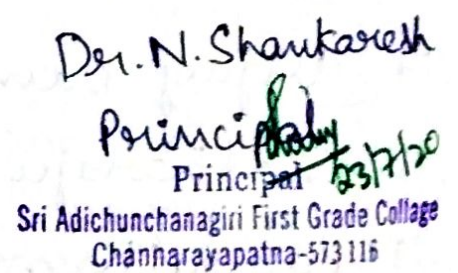 Dr. N. Shankaresh
Principal
Principal 23/7/20
Sri Adichunchanagiri First Grade Collage
Channarayapatna-573116